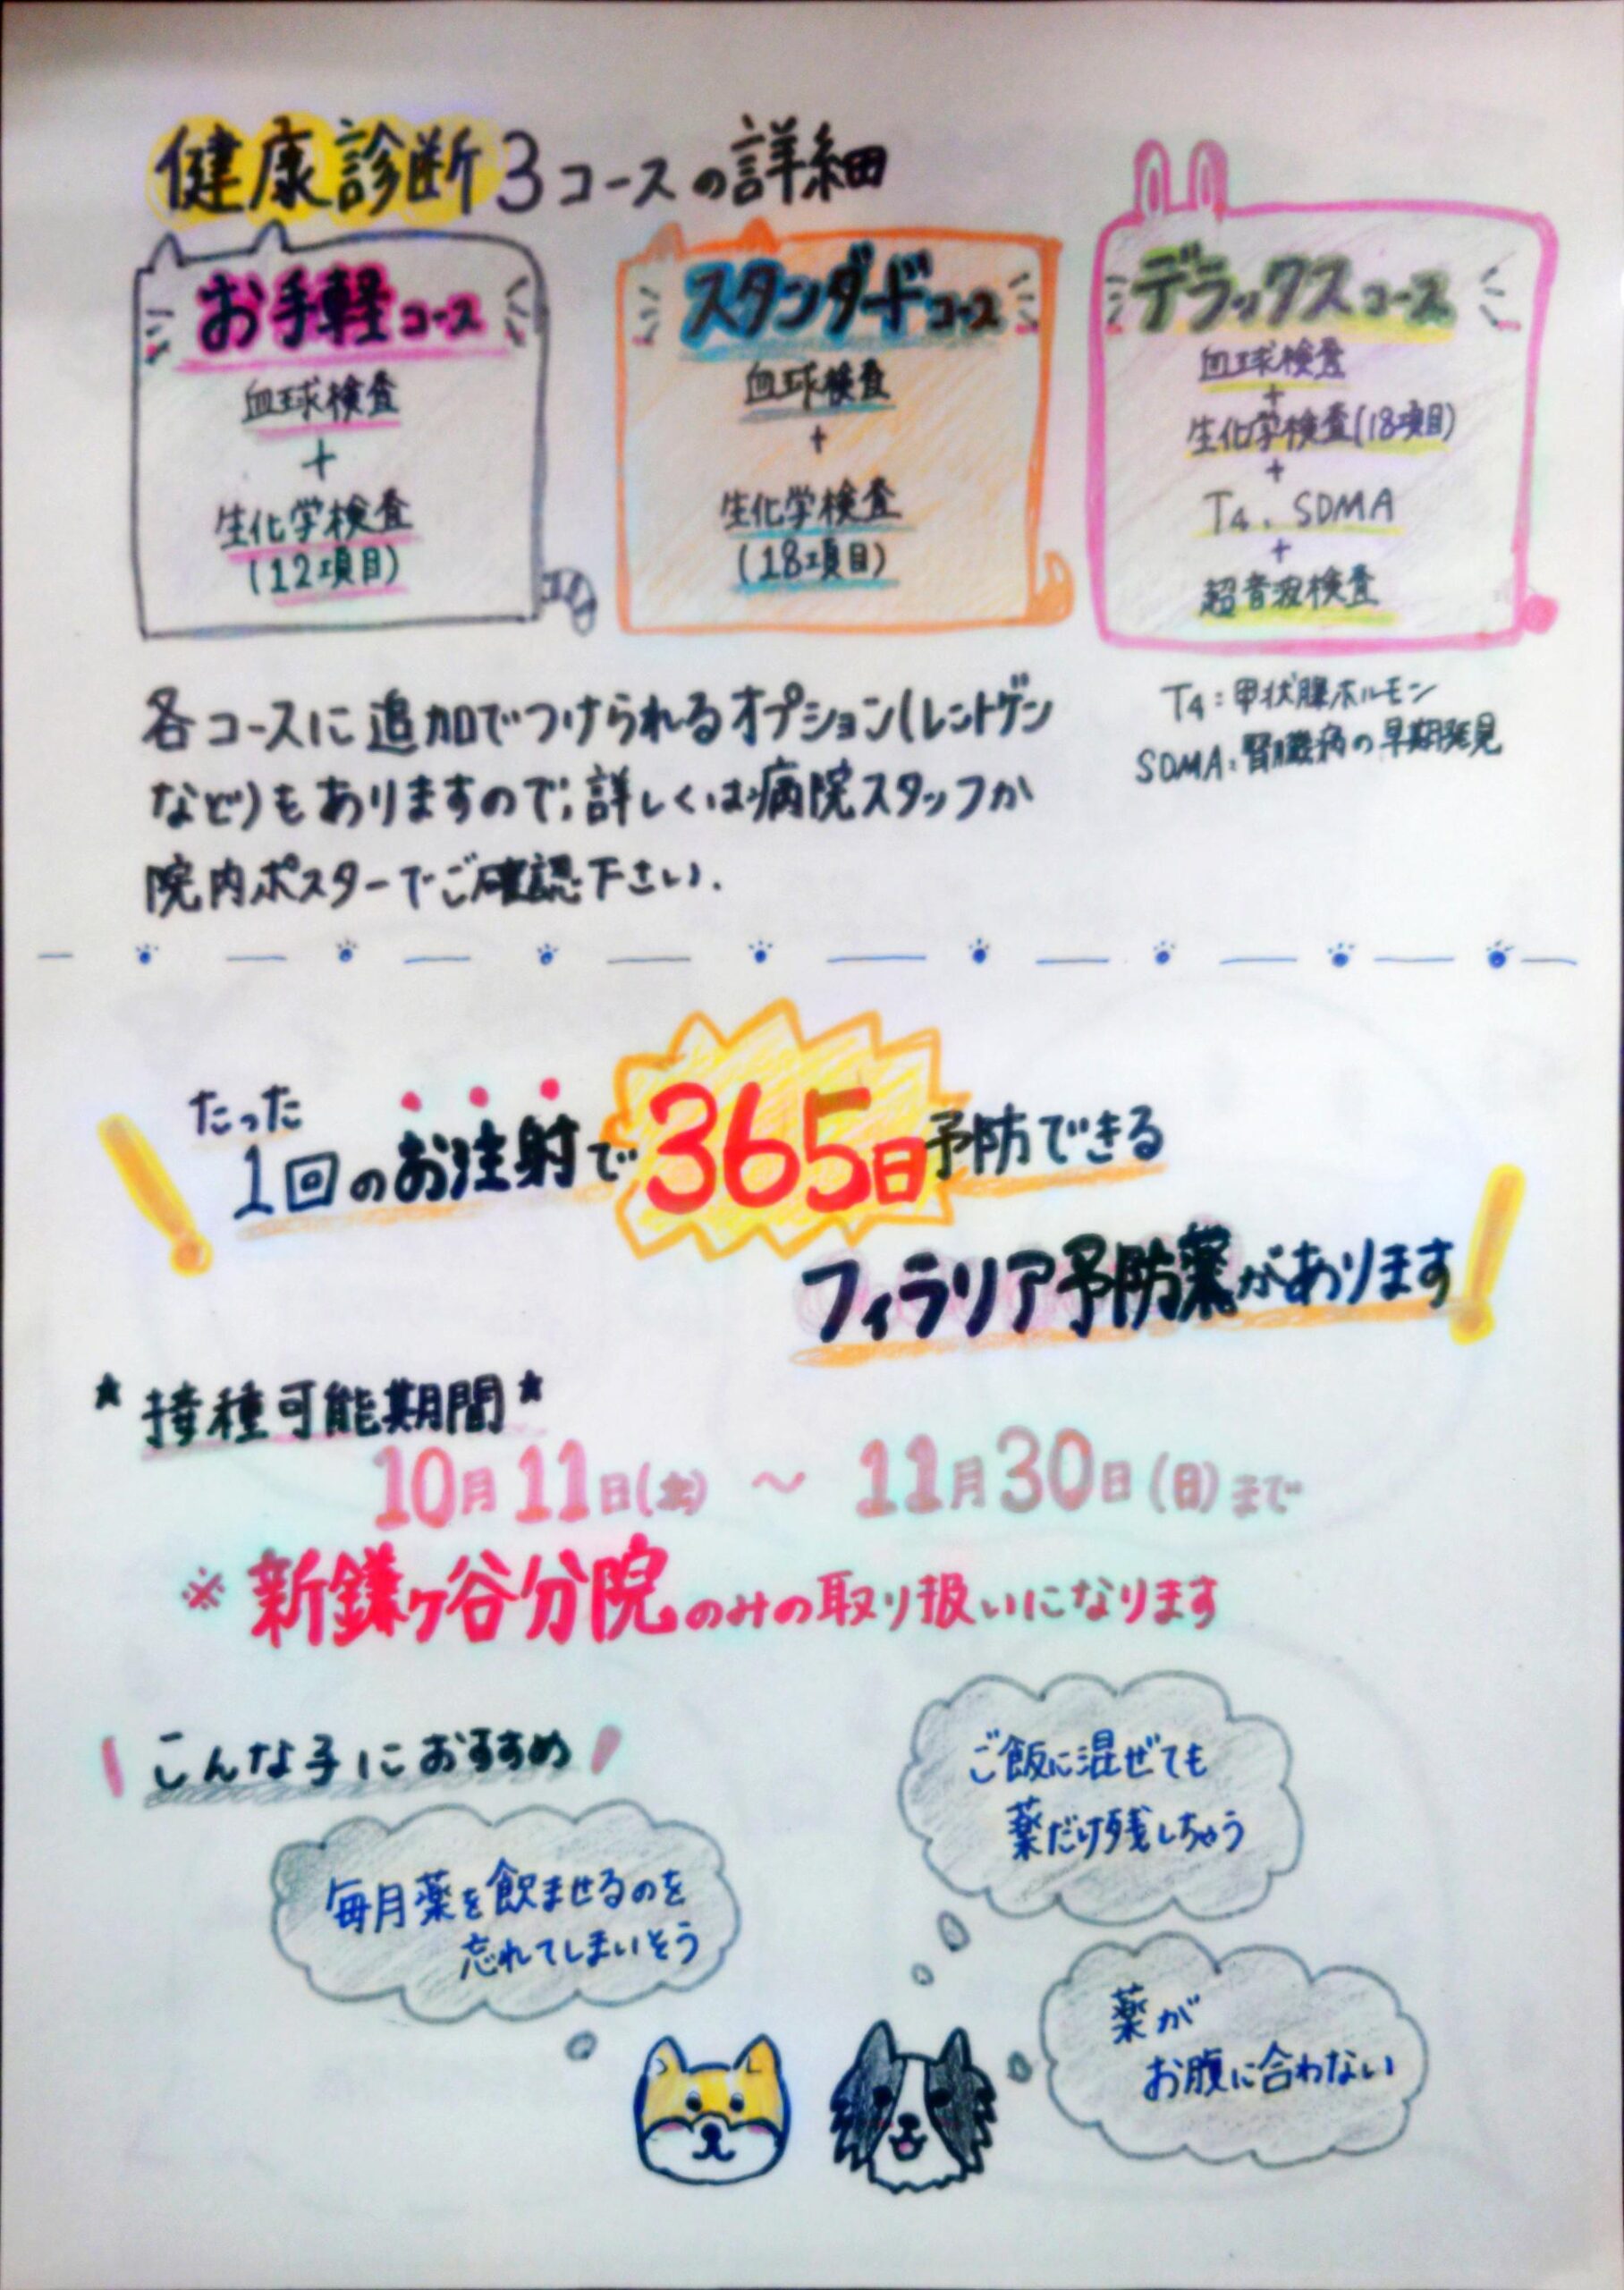 健康診断3コースの詳細
お手軽コース
血球検査
+
生化学検査
(12項目)
スタンダードコース
血球検査
+
生化学検査
(18項目)
デラックスコース
血球検査
+
生化学検査(18項目)
+
T4、SDMA
+
超音波検査
T4:甲状腺ホルモン
SDMA:腎臓病の早期発見
各コースに追加でつけられるオプション(レントゲン
など)もありますので、詳しくは病院スタッフか
院内ポスターでご確認下さい.
たった
1回のお注射で365日予防できる
フィラリア予防薬があります
★接種可能期間★
10月11日 〜 11月30日(日)まで
※新鎌ヶ谷分院のみの取り扱いになります
こんな子におすすめ
ご飯に混ぜても
薬だけ残しちゃう
毎月薬を飲ませるのを
忘れてしまいそう
薬が
お腹に合わない